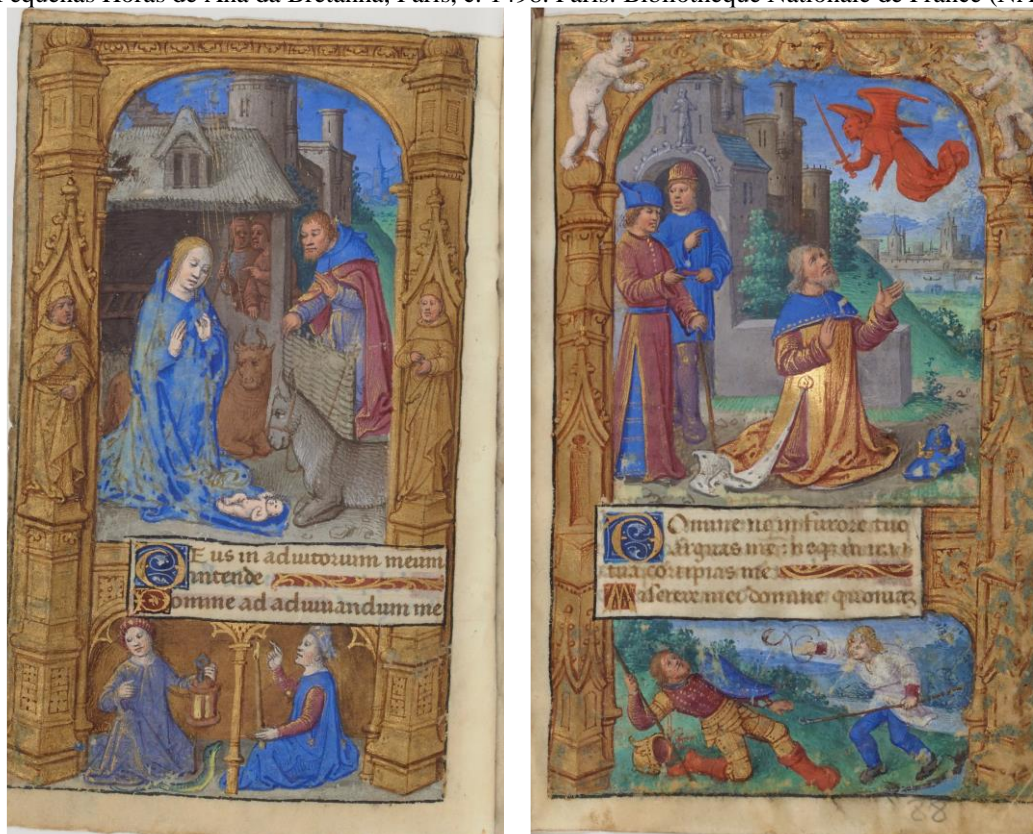 Pequenas Horas de Ana da Bretanha, Paris, c. 1498. Paris: Bibliothèque Nationale de France (NA
DE us in adiutorium meum
intende
Domine ad adiuuandum me
Domine ne in furore tuo
arguas me: neq; in ira
tua corripias me
Miserere mei domine quoniaz
88